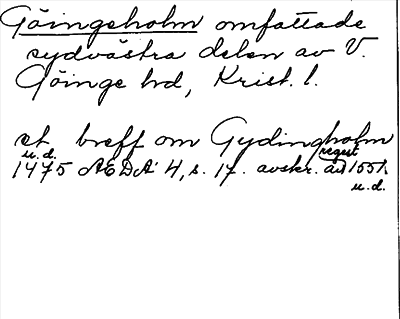 Göingeholm omfattade
sydvästra delen av V.
Göinge hd, Krist. l.
et breff om Gydingholm
u.d. regest
1475 ÆDA 4, s. 17. avskr. av 1551
u.d.